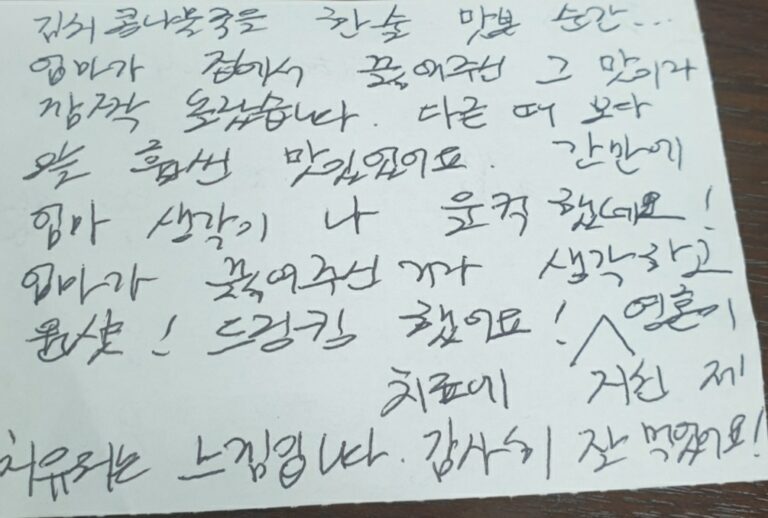 김치 콩나물국을 한 술 맛본 순간...
엄마가 집에서 끓여주신 그 맛이라
깜짝 놀랐습니다. 다른 때 보다
오늘 훨씬 맛있었어요. 간만에
엄마 생각이 나 울컥 했네요!
엄마가 끓여주신거라 생각하고
원샷! 드링킹 했어요! 영혼이
치료에 지친 제
치유되는 느낌입니다. 감사히 잘 먹었어요!